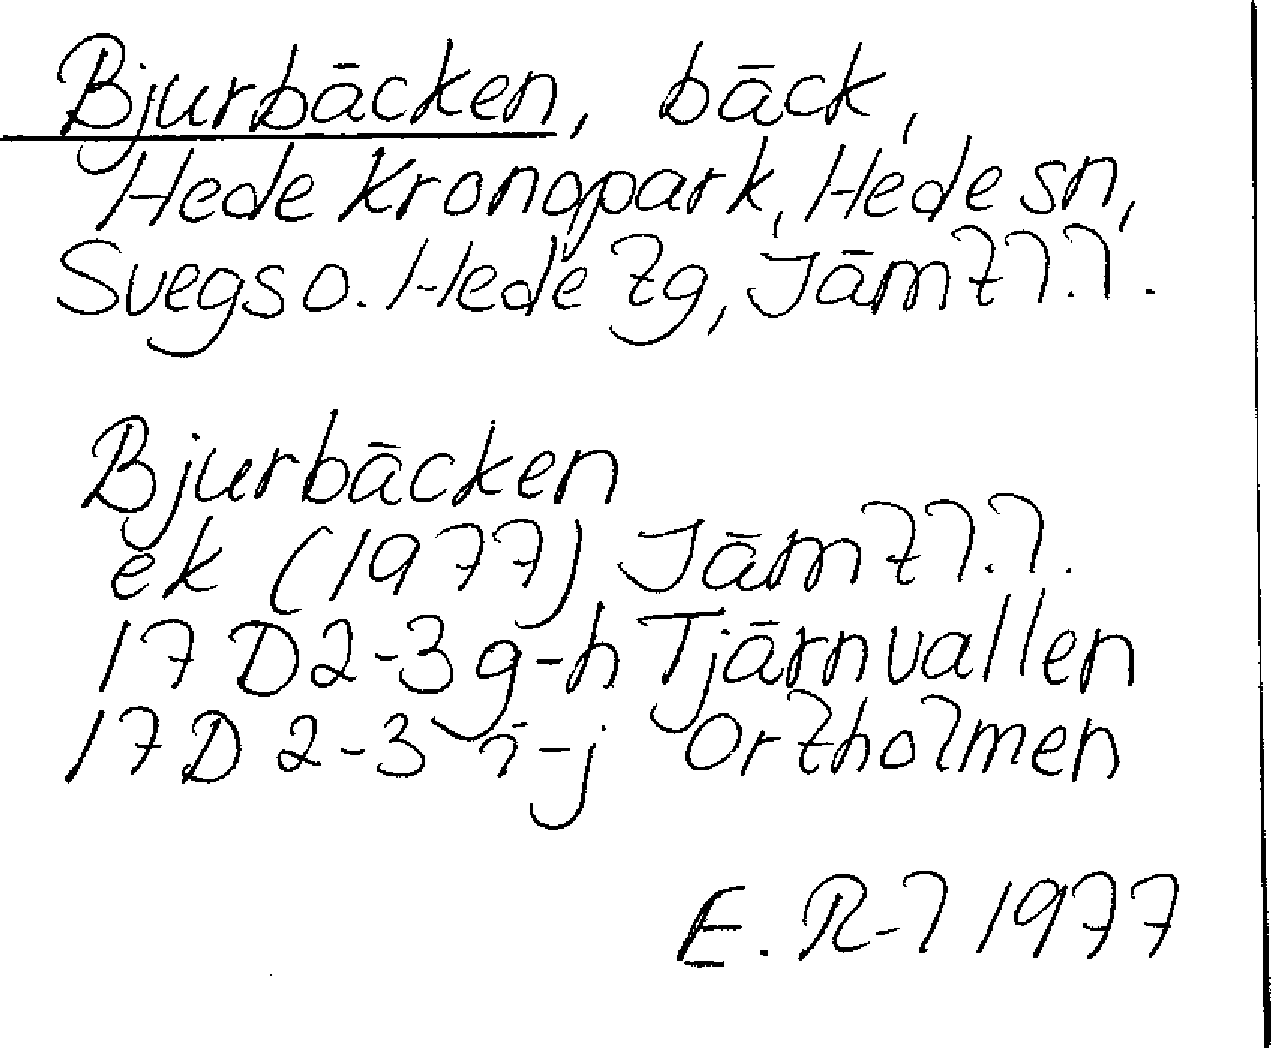 Bjurbäcken, bäck,
Hede kronopark, Hede sn,
Svegs o. Hede tg, Jämtl.l.
Bjurbäcken
ek (1977) Jämtl.l.
17 D 2-3 g-h Tjärnvallen
17 D 2-3 i-j Ortholmen
E. R-l 1977